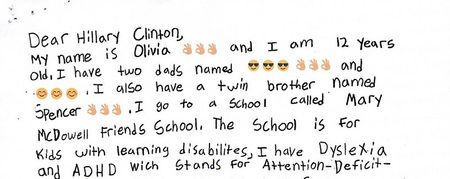 Dear Hillary Clinton,
My name is Olivia 👌🏼👌🏼👌🏼 and I am 12 years
old, I have two dads named 😎😎😎 👌🏼👌🏼👌🏼 and
😊😊😊. I also have a twin brother named
Spencer 👌🏼👌🏼👌🏼. I go to a School called Mary
McDowell Friends School, The School is For
Kids with learning disabilites, I have Dyslexia
and ADHD wich Stands For Attention-Deficit-